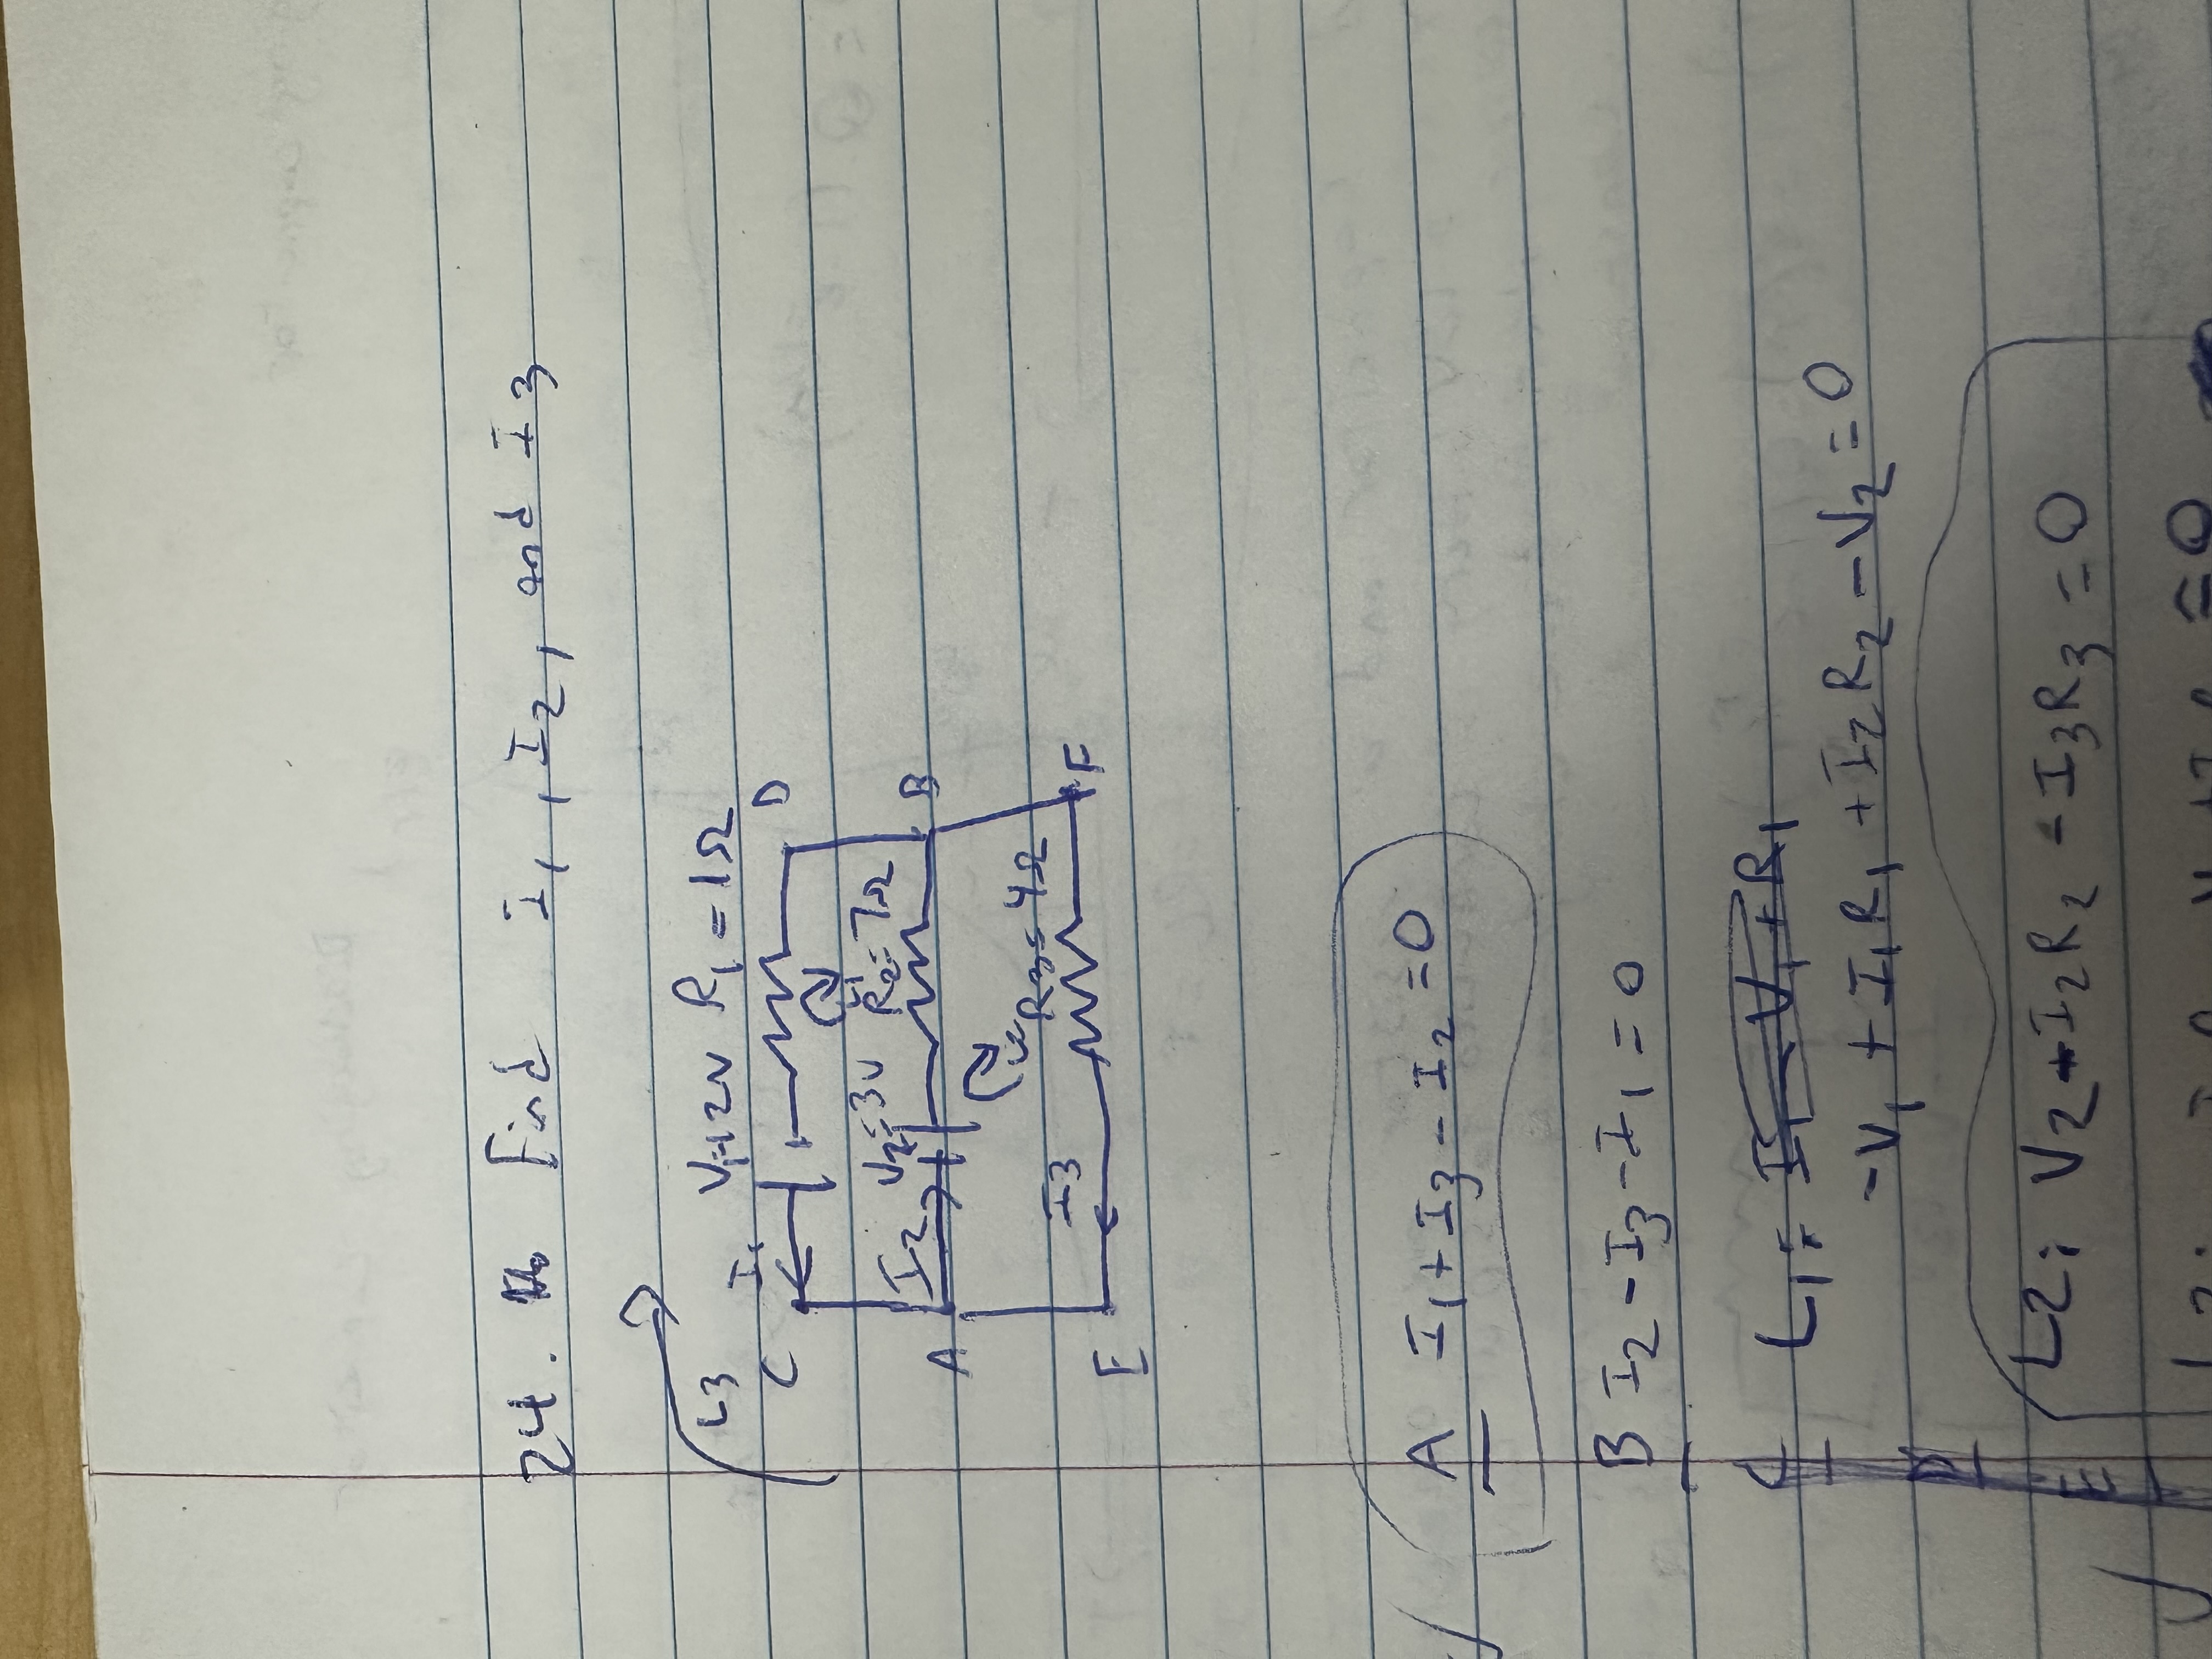 24. Find I₁, I₂, and I₃
L3
V₁=12V R₁=1Ω
C I₁ D
L1
V₂=3V R₂=7Ω
A I₂ B
L2
I₃ R₃=4Ω
E F
A I₁+I₃-I₂=0
B I₂-I₃-I₁=0
L1:
-V₁+I₁R₁+I₂R₂-V₂=0
L2: V₂+I₂R₂-I₃R₃=0